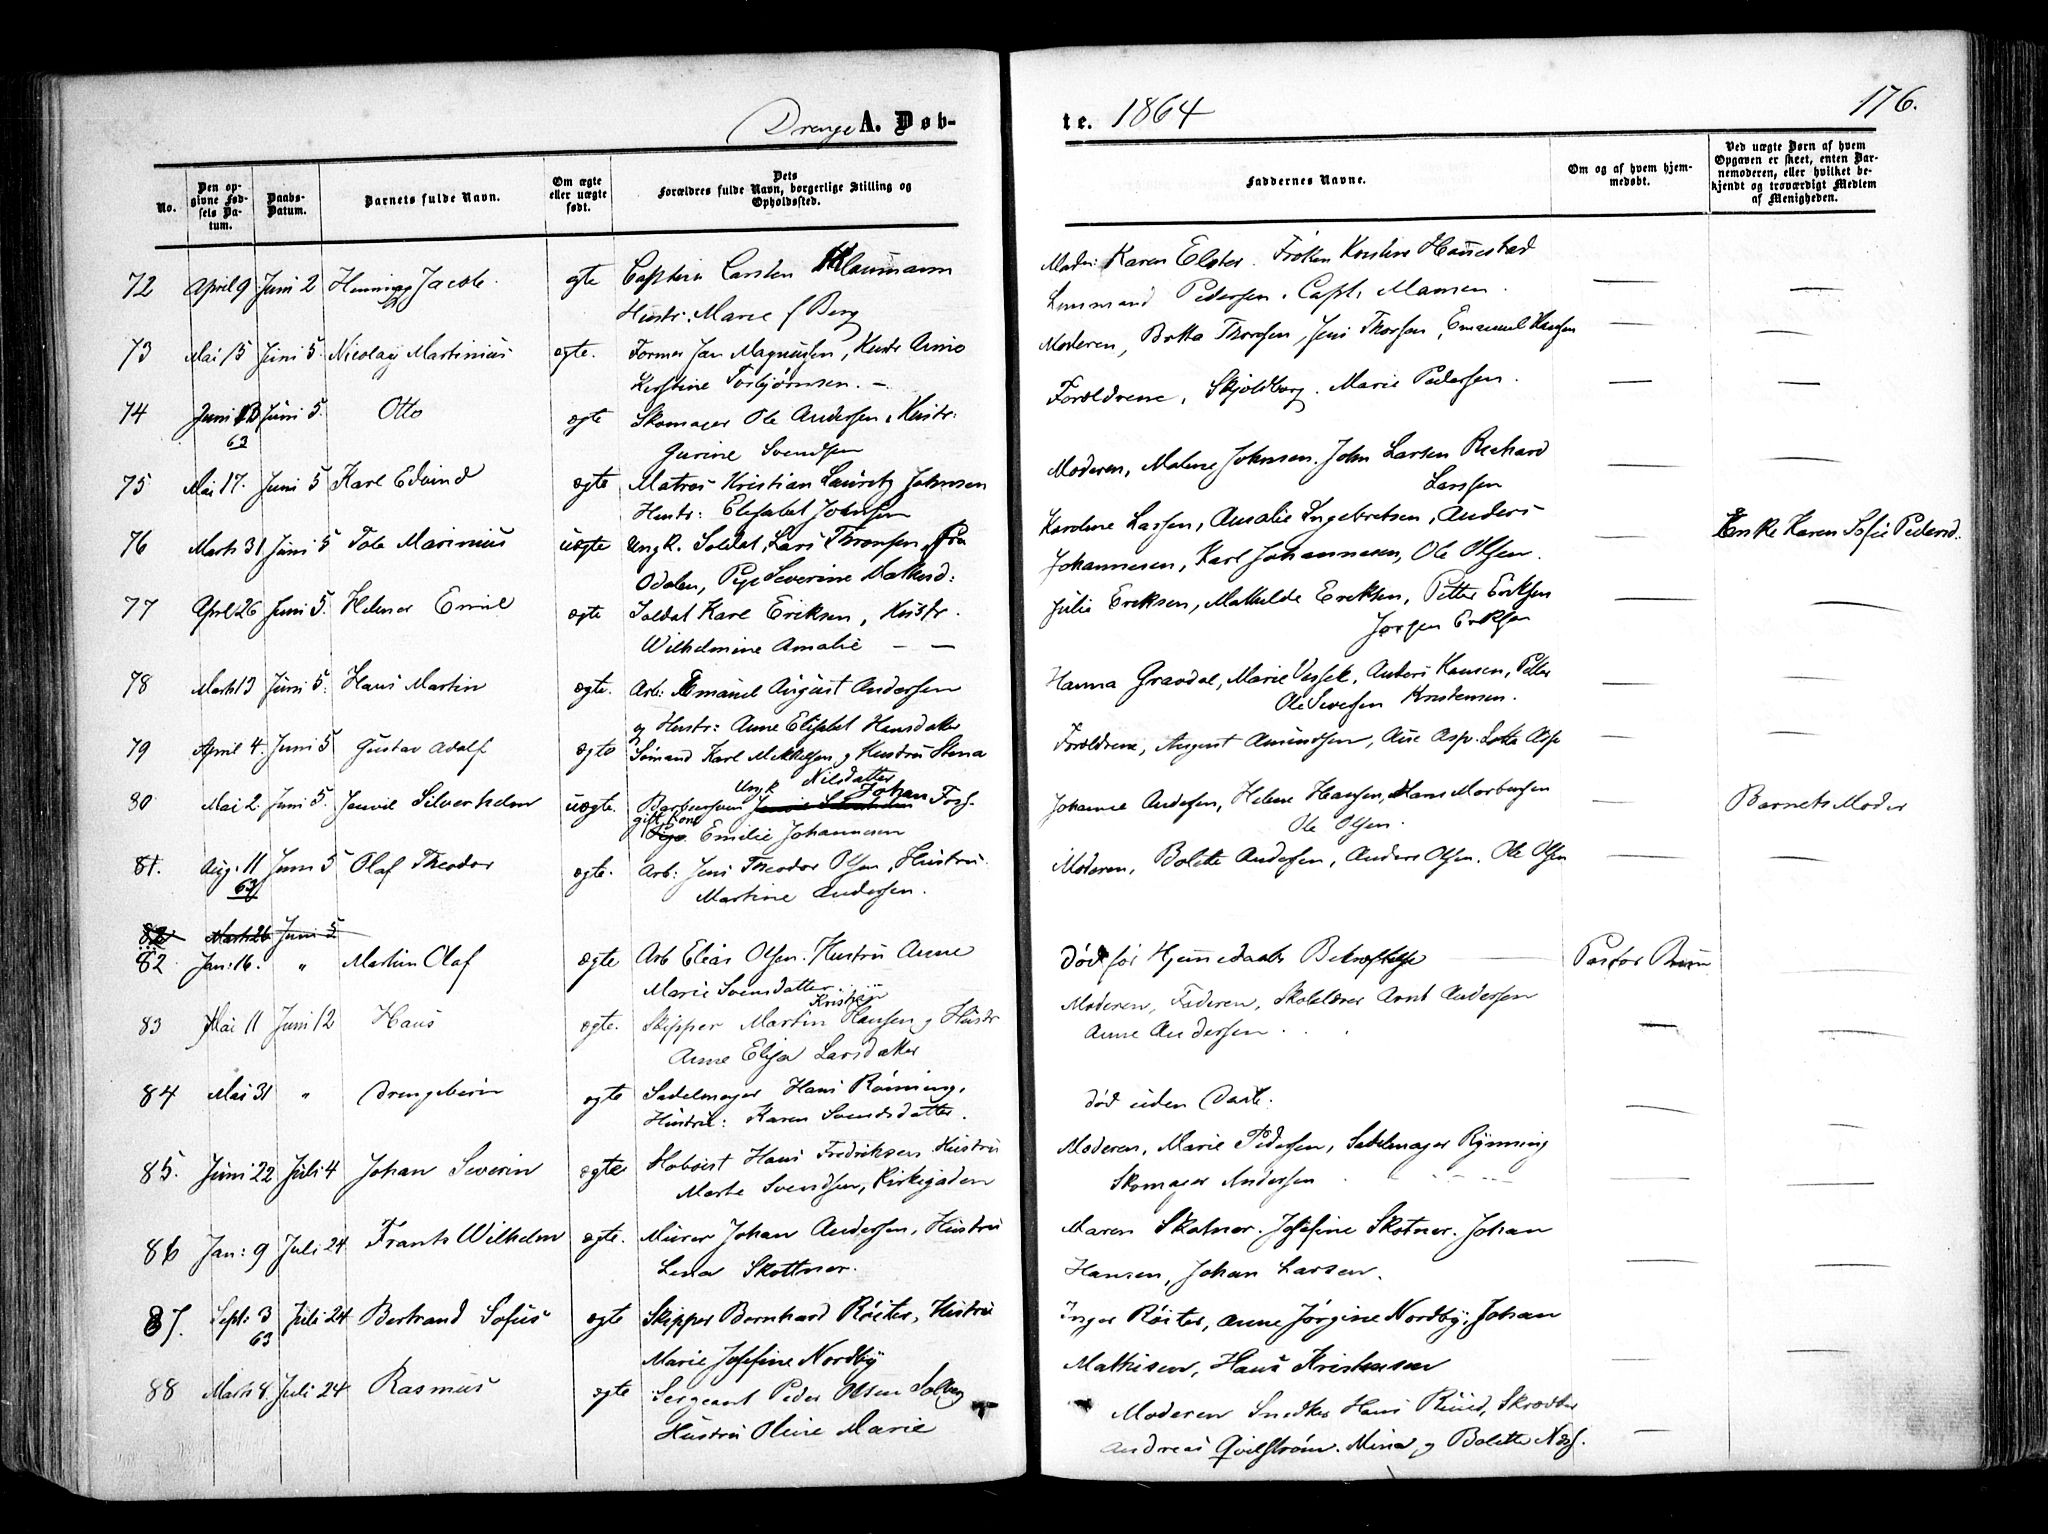 Drenge A. Døb-
te. 1864
176.
No.
Den opgivne Fødsels Datum.
Daabs-Datum.
Barnets fulde Navn.
Om ægte eller uægte født.
Dets Forældres fulde Navn, borgerlige Stilling og Opholdssted.
Faddernes Navne.
Om og af hvem hjemmedøbt.
Ved uægte Børn af hvem Opgaven er skeet, enten Barnemoderen, eller hvilket bekjendt og troværdigt Medlem af Menigheden.
72 April 9 Juni 2 Henning Jacob. ægte Captein Carsten Maumann Karen Elster. Frøken Hauestad
Hustr: Marie f Berg Pedersen. Capt.
73 Mai 15 Juni 5. Nicolaij Martinius ægte. Former Jan Magnussen, Hustr Anne Moderen, Thorsen, Jens Thorsen, Emanuel Hansen
Kerstine Torbjørnsen. —
74 Juni 13 Juni 5. Otto ægte Skomager Ole Andersen, Hustr: Forældrene, Skjoldborg. Marie Pedersen.
63 Gurine Svendsen
75 Mai 17. Juni 5 Karl Edvind ægte Matros Kristian Lauritz Johnsen Moderen, Malene Johnsen. John Larsen Rechard
Hustr: Elisabet Johnsen Larssen
76 Marts 31 Juni 5 Tole Marinius uægte Ungk. Soldat, Lars Thronsen, fra Karoline Larsen, Amalie Ingebretsen, Anders Enke Karen Sofie Pedersd.
Odalen, Pige Severine Johannesen, Karl Johannesen, Ole Olsen.
77 April 26 Juni 5. Helmer Emil ægte Soldat Karl Eriksen, Hustr. Julie Ereksen, Mathilde Ereksen, Petter Eriksen
Wilhelmine Amalie — — Jørgen Eriksen
78 Marts 13 Juni 5. Hans Martin ægte. Arb: Emanuel August Andersen Hanna Gravdal, Marie Anders Hansen, Petter
og Hustr: Anne Elisabet Hansdatter Ole Kristensen.
79 April 4. Juni 5 Gustav Adolf ægte Sømand Karl Mikkelsen og Hustru Stena Forældrene, August Amundsen, Ane Asp. Lotta Asp
Nilsdatter
80 Mai 2. Juni 5. Jenvil Silverhelm uægte. Ungk Johan Johanne Andersen, Helene Hansen, Hans Ole Olsen. Barnets Moder
gift Kone Emilie Johannesen
81. Aug. 11 Juni 5 Olaf Theodor ægte. Arb: Jens Theodor Olsen, Hustru. Moderen, Bolette Andersen, Anders Olsen. Ole Olsen
63 Martine Andersen.
82 Marts 26 Juni 5
82 Jan: 16. " Martin Olaf ægte Arb Elias Olsen. Hustru Anne Død før Hjemmedaabs Bekræftelse Pastor Bruun
Marie Svensdatter
83 Mai 11 Juni 12 Hans ægte. Skipper Martin Kristian Hansen og Hustr Moderen, Faderen, Skolelærer Arnt Andersen
Anne Elisa Larsdatter Anne Andersen
84 Mai 31 " Drengebarn ægte Sadelmager Hans Rønning, død uden Daab.
Hustru: Karen Svendsdatter.
85. Juni 22 Juli 4 Johan Severin ægte Hoboist Hans Fredriksen Hustru Moderen, Marie Pedersen, Sadelmager Rynning
Marte Svendsen, Kirkegaden Skomager Andersen
86 Jan: 9 Juli 24 Frants Wilhelm ægte. Murer Johan Andersen, Hustru Maren Skotner. Josefine Skotner. Johan
Lena Skottner. Hansen, Johan Larsen.
87. Sept: 3 Juli 24 Bertrand Sofus ægte Skipper Bernhard Røiter, Hustru Inger Røiter, Anne Jørgine Nordby, Johan
63 Marie Josefine Nordby Mathisen, Hans Kristensen
88 Marts 8. Juli 24 Rasmus ægte Sergeant Peder Olsen Solberg Moderen Snedker Hans Ruud, Skrædder
Hustru Oline Marie Andreas Qvilstrøm. Mina og Bolette